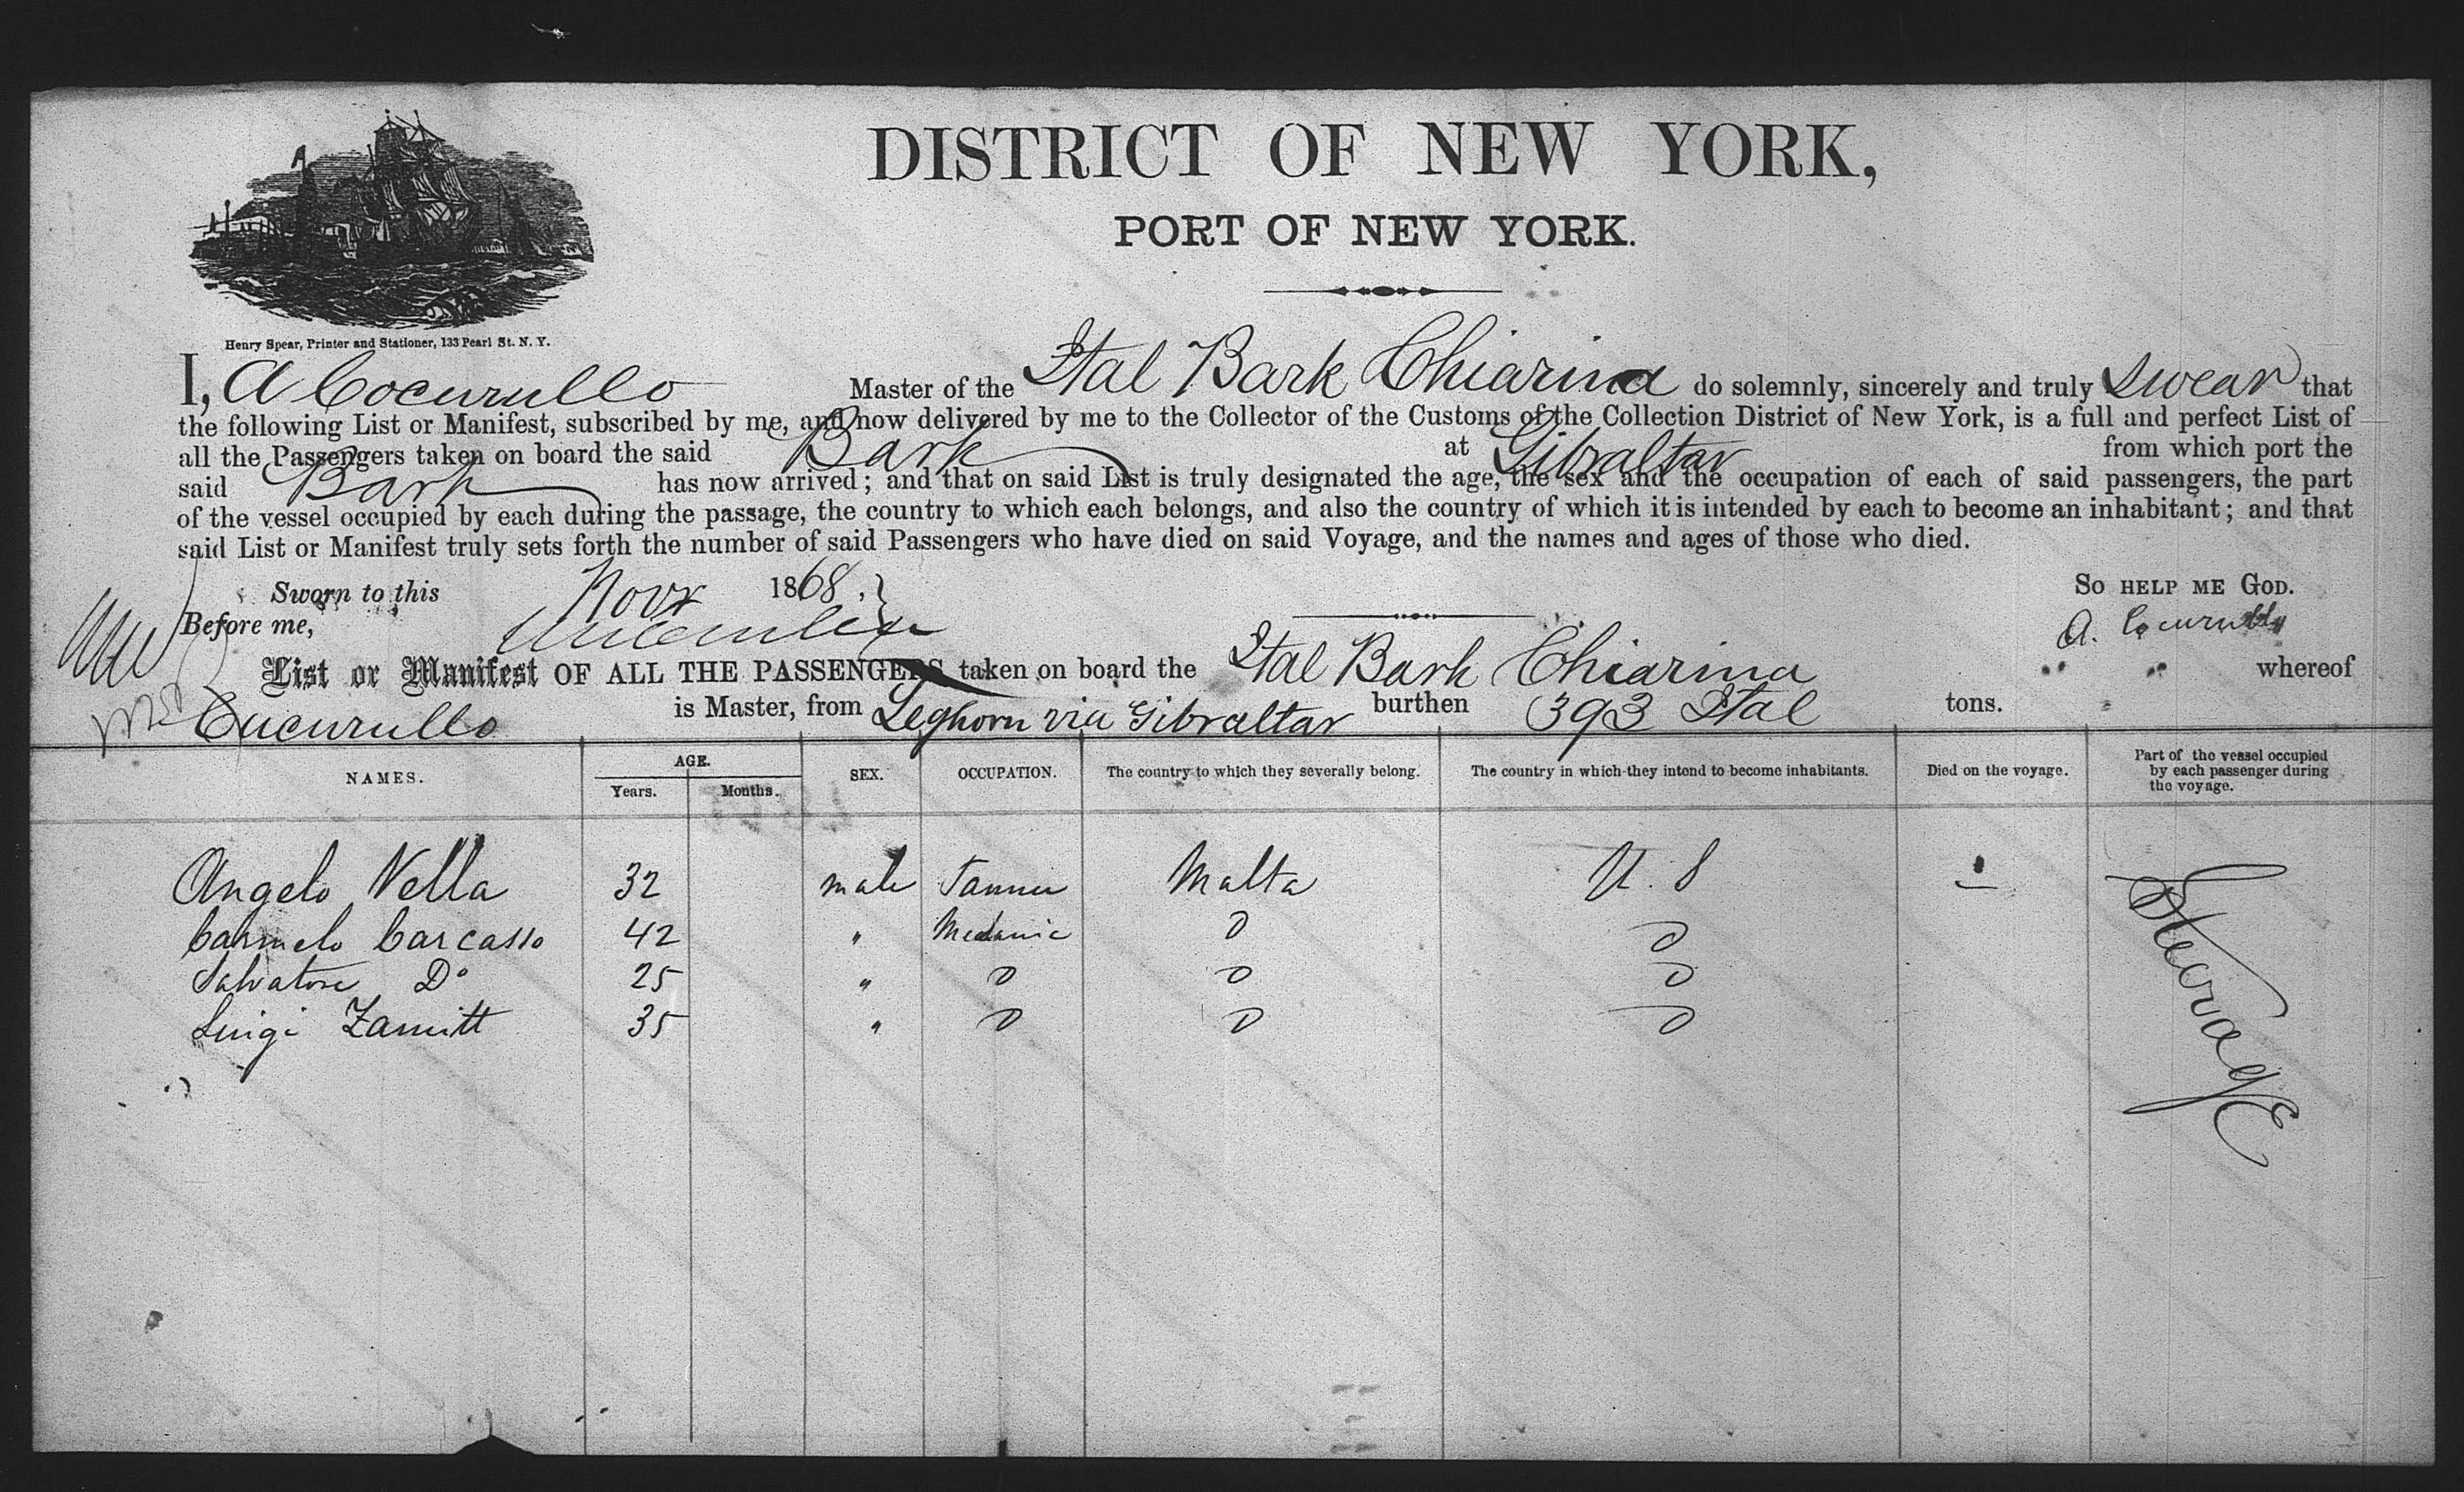 DISTRICT OF NEW YORK,
PORT OF NEW YORK.
Henry Spear, Printer and Stationer, 133 Pearl St. N. Y.
I, A Cocurullo Master of the Ital Bark Chiarina do solemnly, sincerely and truly swear that
the following List or Manifest, subscribed by me, and now delivered by me to the Collector of the Customs of the Collection District of New York, is a full and perfect List of
all the Passengers taken on board the said Bark at Gibraltar from which port the
said Bark has now arrived; and that on said List is truly designated the age, the sex and the occupation of each of said passengers, the part
of the vessel occupied by each during the passage, the country to which each belongs, and also the country of which it is intended by each to become an inhabitant; and that
said List or Manifest truly sets forth the number of said Passengers who have died on said Voyage, and the names and ages of those who died.
Sworn to this Novr 1868, SO HELP ME GOD.
Before me, A. Cocurullo
List or Manifest OF ALL THE PASSENGERS taken on board the Ital Bark Chiarina whereof
Cucurullo is Master, from Leghorn via Gibraltar burthen 393 Ital tons.
NAMES. AGE. Years. Months. SEX. OCCUPATION. The country to which they severally belong. The country in which they intend to become inhabitants. Died on the voyage. Part of the vessel occupied by each passenger during the voyage.
Angelo Vella 32 male Tanner Malta U. S –
Carmelo Carcasso 42 " Mechanic D D
Salvatore Do 25 " D D D
Luigi Zamitt 35 " D D D
Steerage